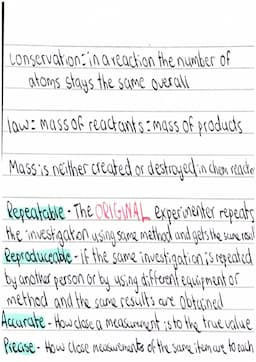 conservation = in a reaction the number of
atoms stays the same overall
law = mass of reactants = mass of products
Mass is neither created or destroyed in chem reaction
Repeatable - The ORIGINAL experimenter repeats
the investigation using same method and gets the same result
Reproduceable - if the same investigation is repeated
by another person or by using different equipment or
method and the same results are obtained
Accurate - How close a measurement is to the true value
Precise - How close measurements of the same item are to each